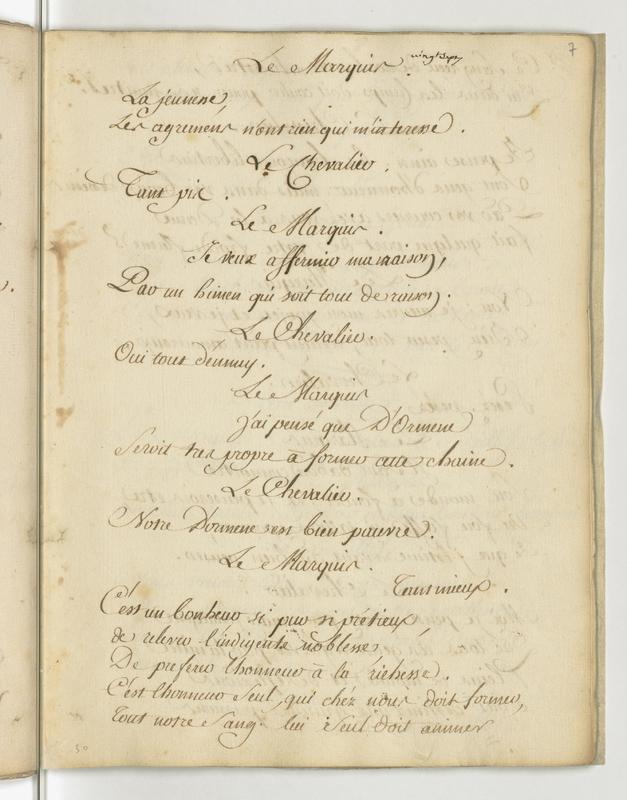 7
Le Marquis.
La jeunesse,
Les agremens n'ont rien qui m'interesse.
Le Chevalier.
Tant pis.
Le Marquis.
Je veux affermir ma maison,
Par un himen qui soit tout de raison.
Le Chevalier.
Oui tout d'ennuy.
Le Marquis
j'ai pensé que D'Ormene
Seroit tres propre a former cette chaine.
Le Chevalier.
Notre Dormene est bien pauvre.
Le Marquis.
Tant mieux.
C'est un bonheur si pur si prétieux,
de relever l'indigente noblesse,
De preferer l'honneur à la richesse.
C'est l'honneur seul, qui chéz nous doit former,
Tout notre Sang. lui Seul doit animer
50